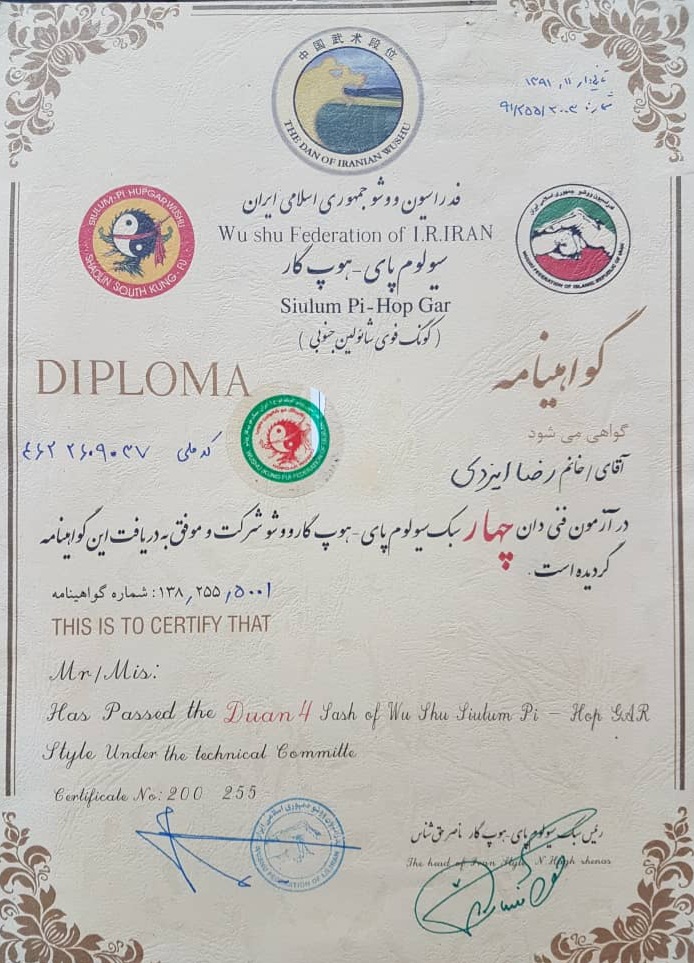 中国武术段位
THE DAN OF IRANIAN WUSHU
فدراسیون ووشو جمهوری اسلامی ایران
Wu shu Federation of I.R.IRAN
SIULUM-PI-HUPGAR WUSHU
SHAOLIN SOUTH KUNG-FU
فدراسیون ووشو جمهوری اسلامی ایران
WUSHU FEDERATION OF ISLAMIC REPUBLIC OF IRAN
سیولوم پای-هوپ گار
Siulum Pi-Hop Gar
(کونگ فوی شائولین جنوبی)
DIPLOMA
گواهینامه
گواهی می شود
کد ملی
آقای/خانم رضا ایزدی
در آزمون فنی دان چهار سبک سیولوم پای-هوپ گار ووشو شرکت و موفق به دریافت این گواهینامه
گردیده است.
شماره گواهینامه: ۱۳۸٫۲۵۵٫۵۰۰۱
THIS IS TO CERTIFY THAT
Mr/Mis:
Has Passed the Duan 4 Sash of Wu Shu Siulum Pi – Hop GAR
Style Under the technical Committe
Certificate No: 200 255
رئیس سبک سیولوم پای-هوپ گار ناصر حق شناس
The head of Iran Style N.Hagh shenas